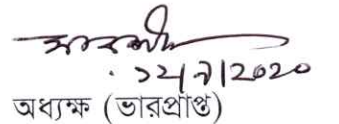 ১২/৭/২০২০
অধ্যক্ষ (ভারপ্রাপ্ত)